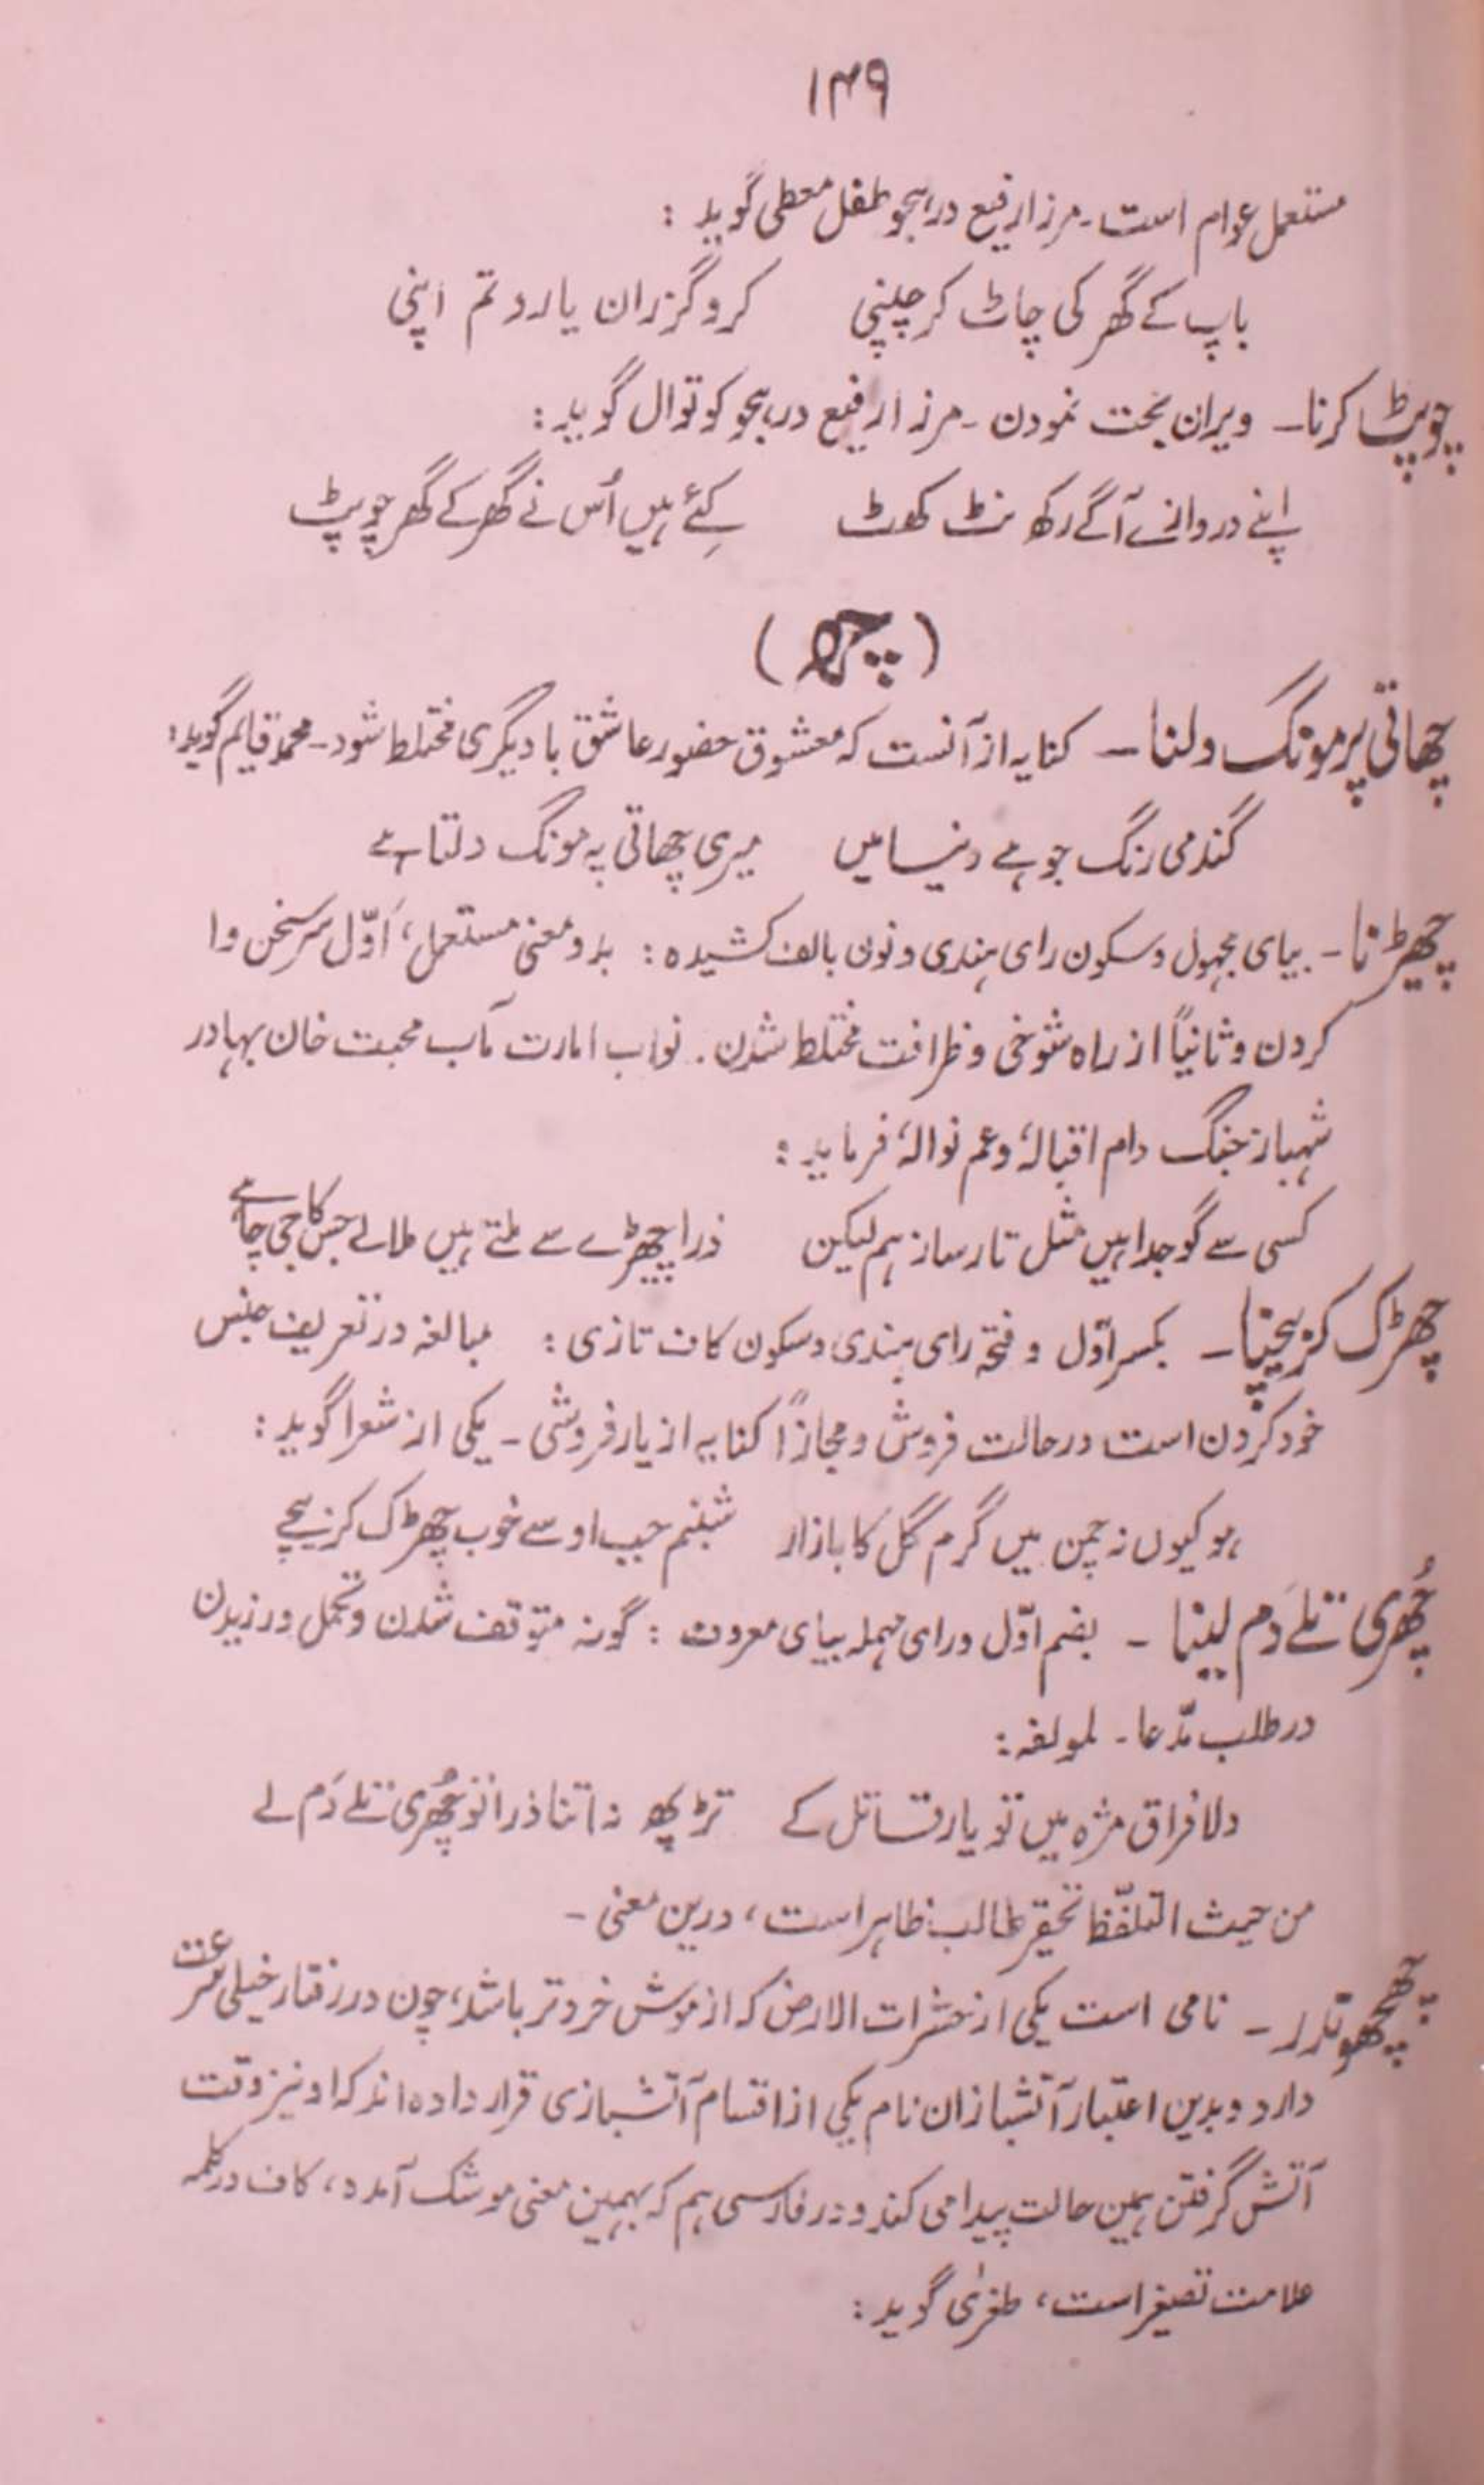 ۱۴۹
مستعمل عوام است ـ مرزا رفیع در ہجو طفل معطی گوید :
باپ کے گھر کی چاٹ کر چپنی کرو گزران یارو تم اپنی
چوپٹ کرنا ـ ویران بحت نمودن ـ مرزا رفیع در ہجو کوتوال گوید :
اپنے دروازے آگے رکھ نٹ کھٹ کئے ہیں اُس نے گھر کے گھر چوپٹ
( چھ )
چھاتی پر مونگ دلنا ـ کنایہ از آنست کہ معشوق حضور عاشق با دیگری مختلط شود ـ محمد قایم گوید :
گندمی رنگ جو ہے دنیا میں میری چھاتی پہ مونگ دلتا ہے
چھیڑنا ـ بیای مجہول و سکون رای ہندی و نون بالف کشیدہ : بدو معنی مستعمل، اوّل سر سخن وا
کردن و ثانیاً از راہ شوخی و ظرافت مختلط شدن ۔ نواب امارت مآب محبت خان بہادر
شہباز جنگ دام اقبالہٗ و عم نوالہٗ فرماید :
کسی سے گو جدا ہیں مثل تار ساز ہم لیکن ذرا چھیڑے سے ملتے ہیں ملالے جس کا جی چاہے
چھڑک کر بیچنا ـ بکسر اوّل و فتحہ رای ہندی و سکون کاف تازی : مبالغہ در تعریف جنس
خود کردن است در حالت فروش و مجازاً کنایہ از یار فروشی ـ یکی از شعرا گوید :
ہو کیوں نہ چمن میں گرم گل کا بازار شبنم جب اوسے خوب چھڑک کر بیچے
چُھری تلے دَم لینا ـ بضم اوّل و رای مہملہ بیای معروف : گونہ متوقف شدن و تحمل ورزیدن
در طلب مدّعا ـ لمولفہ :
دلا فراق مژہ میں تو یار قاتل کے تڑپھ نہ اتنا ذرا تو چُھری تلے دَم لے
من حیث التلفّظ تحقیر طالب ظاہر است، درین معنی ـ
چھچھوندر ـ نامی است یکی از حشرات الارض کہ از موش خردتر باشد، چون در رفتار خیلی سرعت
دارد و بدین اعتبار آتشبازان نام یکی از اقسام آتشبازی قرار دادہ اند کہ او نیز وقت
آتش گرفتن ہمین حالت پیدا می کند و در فارسی ہم کہ بہمین معنی موشک آمدہ، کاف در کلمہ
علامت تصغیر است، طغریٰ گوید :